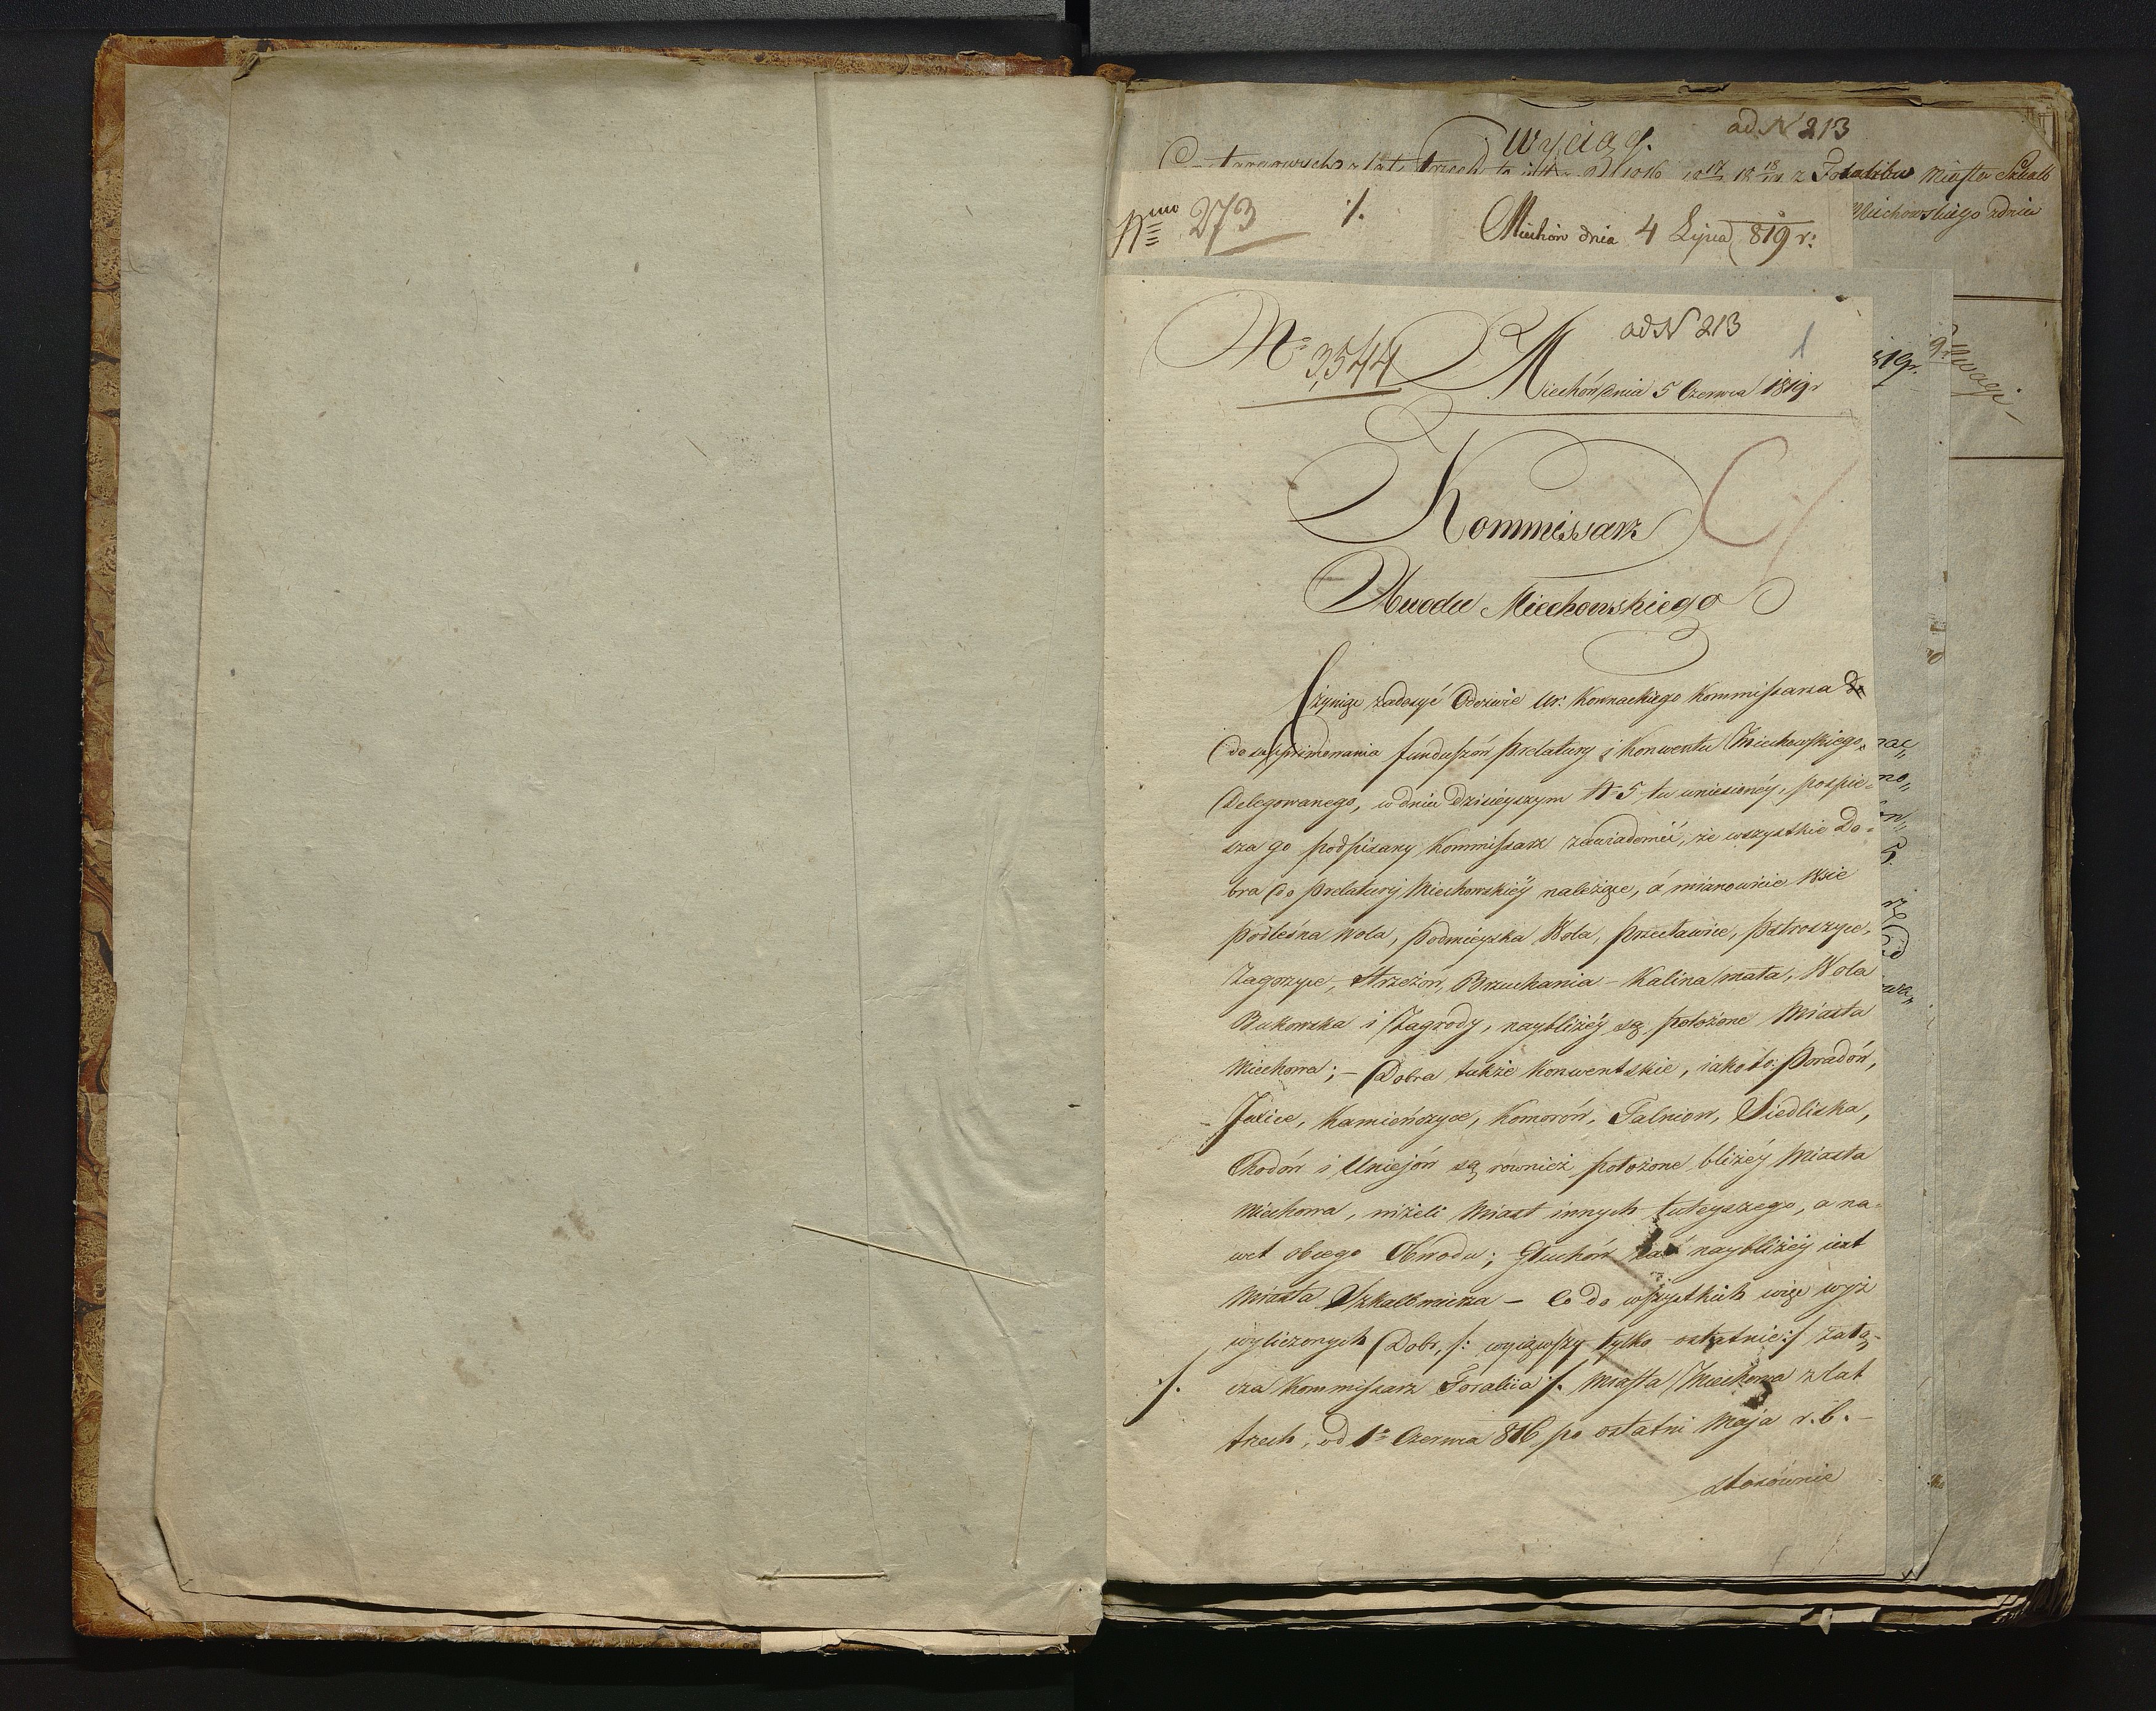 Wyciąg. ad N 213
Targowych z lat trzech to iest 18 17/18 18/19 z Foraliów Miasta Szkalb
Miechowskiego zdnia
Nmo 273 ·/. Miechów dnia 4 Lipca 819 r:
819r.
Uwagi
ad N 213
1
No 3,544 Miechów dnia 5 Czerwca 1819r
Kommissarz
Obwodu Miechowskiego
Czyniąc zadosyć Odezwie Ur: Kownackiego Kommissarza
do supprimowania funduszów Prelatury i Konwentu Miechowskiego
Delegowanego, w dniu dzisieyszym N 5 tu uniesionéy, pospie=
sza go podpisany Kommissarz zawiadomić, że wszystkie Do=
bra do Prelatury Miechowskiéy należące, á mianowicie Wsie
Podleśna Wola, Podmieyska Wola, Przecławice, Pstroszyce,
Zagorzyce, Strzeżów, Brzuchania – Kalina mała, Wola
Bukowska i Zagrody, naybliżéy są położone Miasta
Miechowa; – Dobra także Konwentskie, iako to: Poradów,
Jaxice, Kamieńczyce, Komorów, Falniow, Siedliska,
Chodów i Uniejów są rownież położone bliżéy Miasta
Miechowa, niżeli Miast innych tuteyszego, a na=
wet obcego Obwodu; Głuchów zaś naybliżéy iest
Miasta Szkalbmierza – Co do wszystkich więc wyż
wyliczonych Dobr, /: wyiąwszy tylko ostatnie :/ załą-
·/. cza Kommissarz Foralia ·/. Miasta Miechowa z lat
trzech, od 1o Czerwca 816 po ostatni Maja r. b. –
stosównie